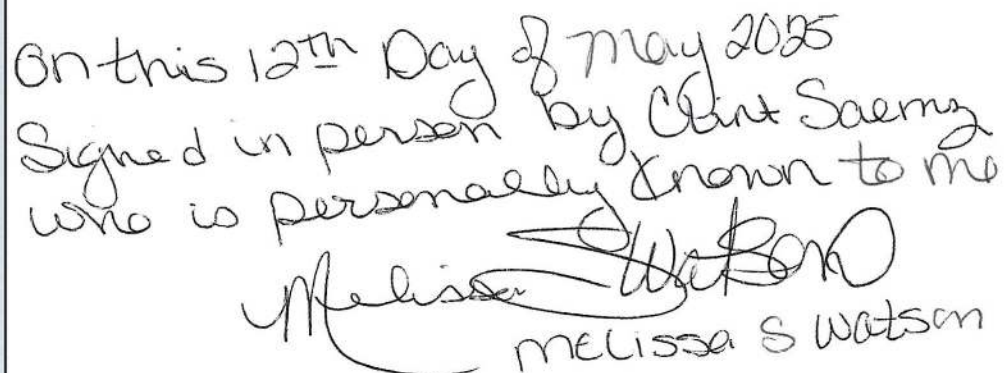 On this 12th Day of May 2025
Signed in person by Clint Saemz
who is personally known to me
Melissa S Watson
Melissa S Watson